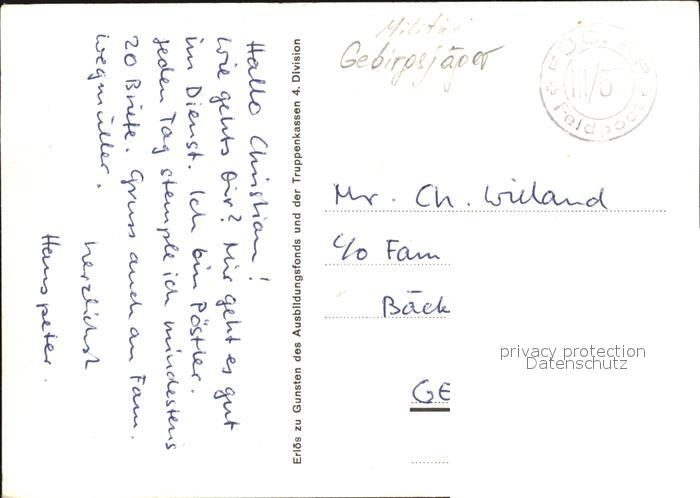 Hallo Christian!
wie gehts Dir? Mir geht es gut
im Dienst. Ich bin Pöstler.
Jeden Tag stemple ich mindestens
20 Briefe. Gruss auch an Fam.
Wegmüller.
herzlichst
Hanspeter.
Erlös zu Gunsten des Ausbildungsfonds und der Truppenkassen 4. Division
Militär
Gebirgsjäger
III/5
Feldpost
Mr. Ch. Wieland
c/o Fam
Bäck
GE
privacy protection
Datenschutz